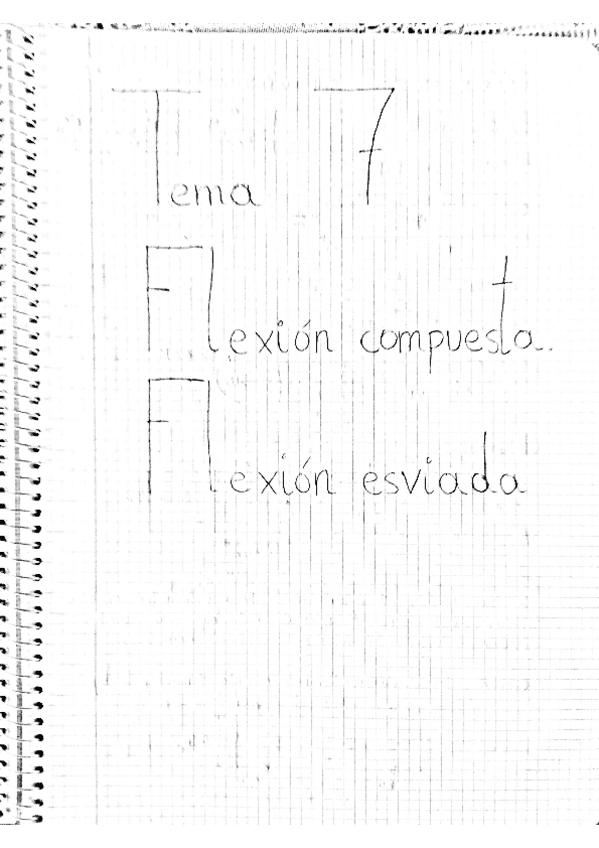 Tema 7
Flexión compuesta.
Flexión esviada